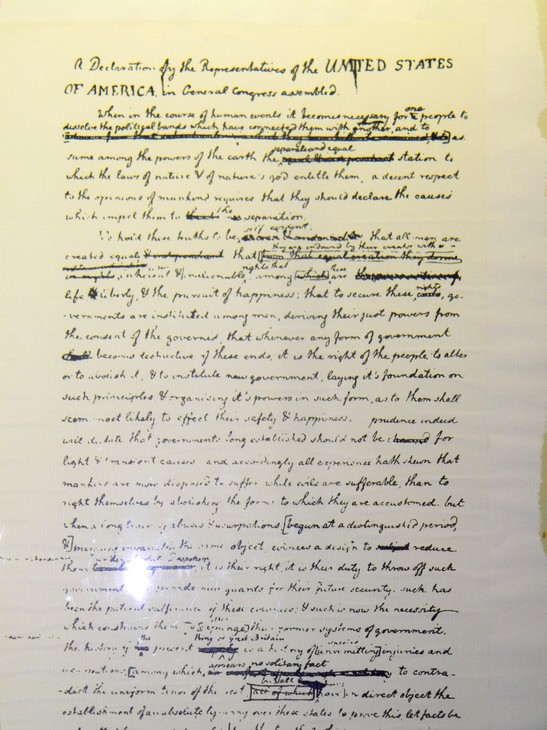 A Declaration by the Representatives of the UNITED STATES
OF AMERICA, in General Congress assembled.
When in the course of human events it becomes necessary for one people to
dissolve the political bands which have connected them with another, and to
as-
separate and equal
sume among the powers of the earth the station to
which the laws of nature & of nature's god entitle them, a decent respect
to the opinions of mankind requires that they should declare the causes
which impel them to the separation.
self evident
We hold these truths to be that all men are
they are endowed by their creator with
created equal & independant that from that equal creation they derive
rights that these
inherent & inalienable among which are
life & liberty, & the pursuit of happiness; that to secure these rights, go-
-vernments are instituted among men, deriving their just powers from
the consent of the governed, that whenever any form of government
becomes destructive of these ends, it is the right of the people to alter
or to abolish it, & to institute new government, laying it's foundation on
such principles & organising it's powers in such form, as to them shall
seem most likely to effect their safety & happiness. prudence indeed
will dictate that governments long established should not be changed for
light & transient causes and accordingly all experience hath shewn that
mankind are more disposed to suffer while evils are sufferable, than to
right themselves by abolishing the forms to which they are accustomed. but
when a long train of abuses & usurpations [begun at a distinguished period,
&] the same object, evinces a design to reduce
them it is their right, it is their duty to throw off such
government & to provide new guards for their future security. such has
been the patient sufferance of these colonies; & such is now the necessity
which constrains them to expunge their former systems of government.
the history of the present is a history of [unremitting] injuries and
appears no solitary fact
usurpations, [among which, to contra-
-dict the uniform tenor of the rest [all of which] have in direct object the
establishment of an absolute tyranny over these states to prove this, let facts be